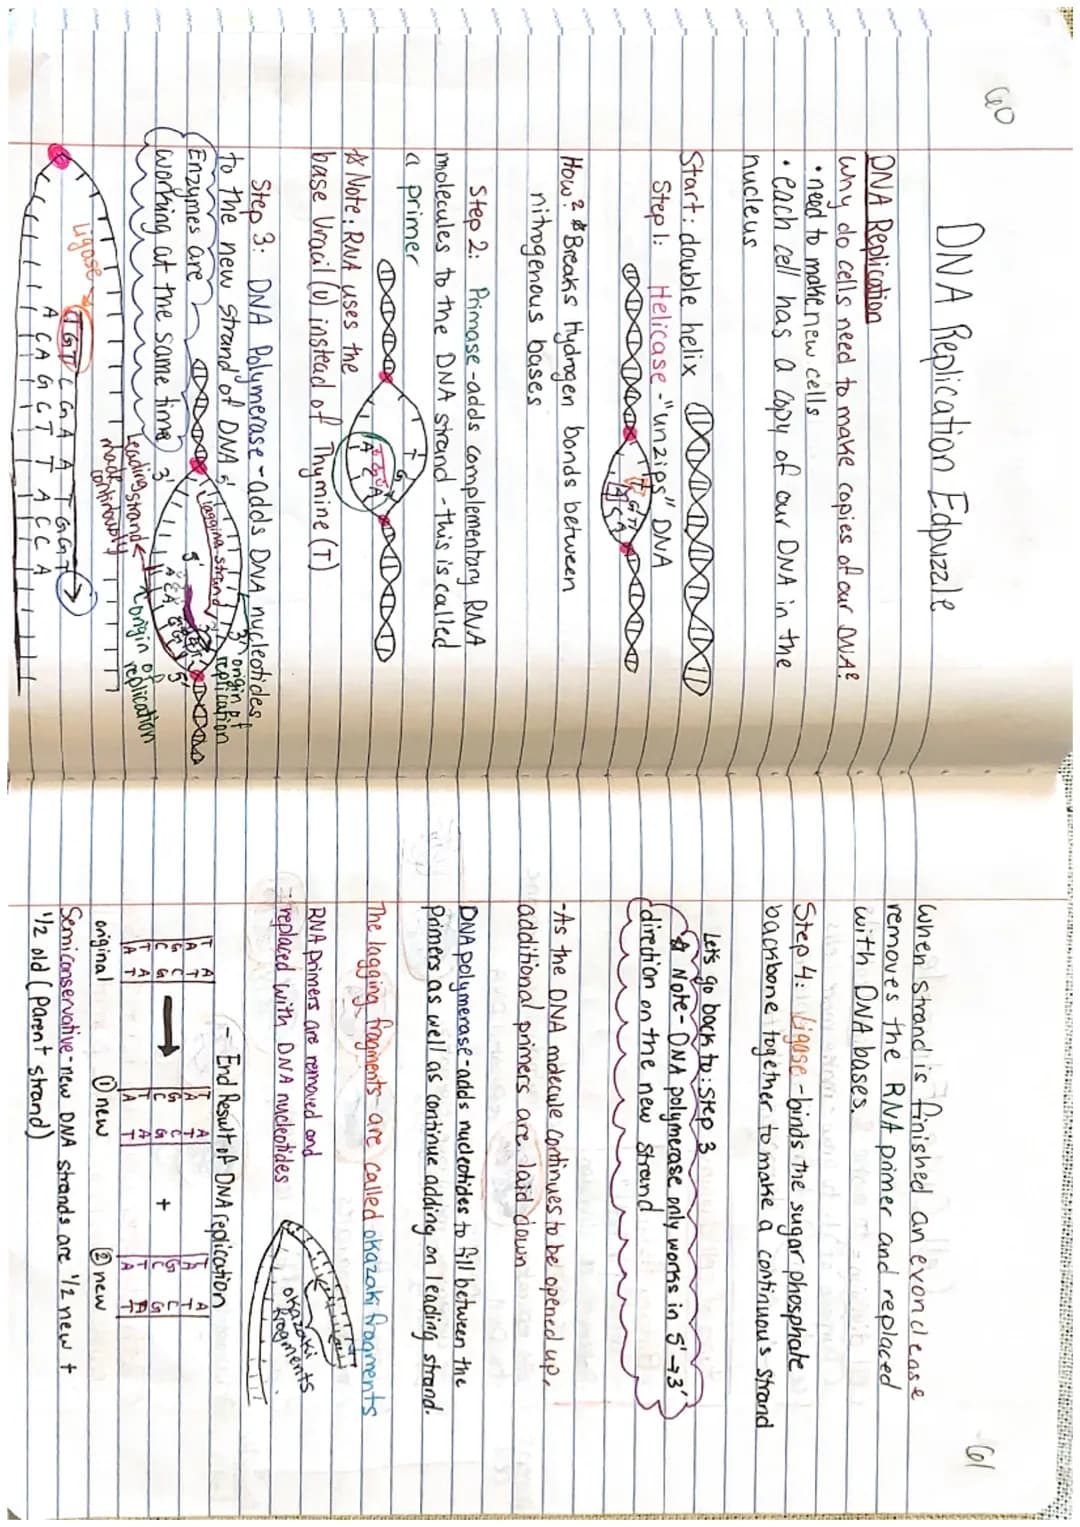 60
DNA Replication Edpuzzle
DNA Replication
why do cells need to make copies of our DNA?
• need to make new cells
• each cell has a copy of our DNA in the
nucleus
Start: double helix
Step 1: Helicase - "unzips" DNA
How? Breaks Hydrogen bonds between
nitrogenous bases
Step 2: Primase - adds complementary RNA
molecules to the DNA strand - this is called
a primer
Note: RNA uses the
base Uracil (U) instead of Thymine (T)
Step 3: DNA Polymerase - adds DNA nucleotides
to the new strand of DNA
Enzymes are
working at the same time
lagging strand
3' origin of
replication
5'
3'
5'
5'
Leading strand
made
continuously
origin of
replication
Ligase
T G T C G A A T G G T
A C A G C T T A C C A
61
when strand is finished an exonclease
removes the RNA primer and replaced
with DNA bases.
Step 4: Ligase - binds the sugar phosphate
backbone together to make a continuous strand
Let's go back to: Step 3
Note - DNA polymerase only works in 5' → 3'
direction on the new strand
- As the DNA molecule continues to be opened up,
additional primers are laid down
DNA polymerase - adds nucleotides to fill between the
primers as well as continue adding on leading strand.
The lagging fragments - are called okazaki fragments
RNA primers are removed and
- replaced with DNA nucleotides
okazaki
fragments
- End Result of DNA replication
T A
A T
G C
C G
T A
A T
original
T A
A T
G C
C G
T A
A T
① new
+
T A
A T
G C
C G
T A
A T
② new
Semiconservative - new DNA strands are 1/2 new +
1/2 old (Parent strand)